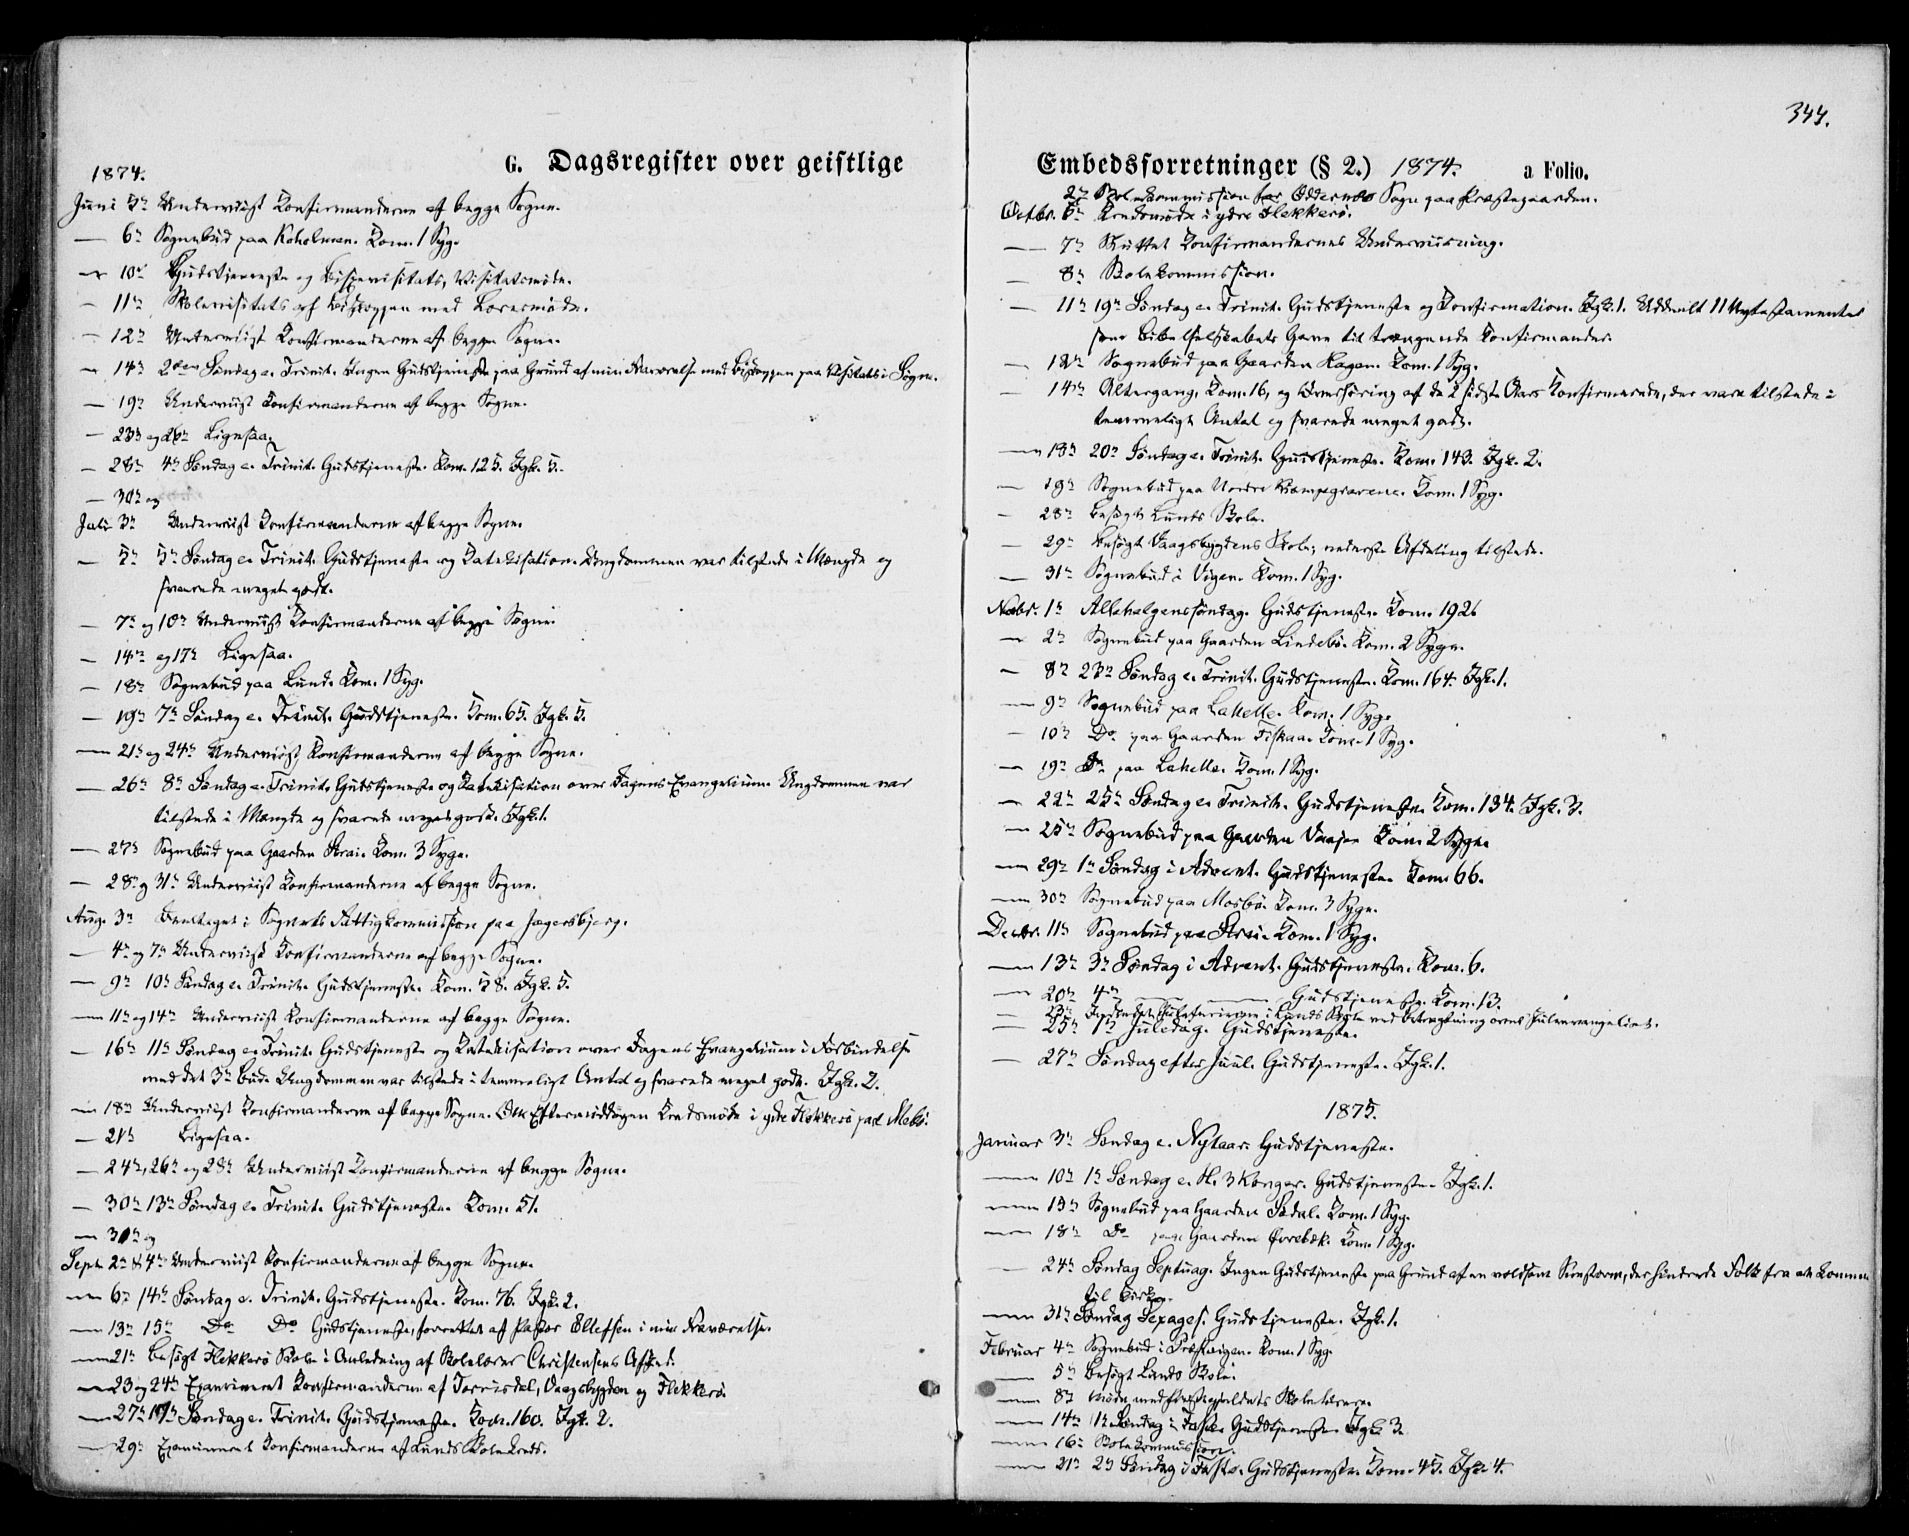 344.
G. Dagsregister over geistlige Embedsforretninger (§ 2.) 1874. a Folio.
1874.
Juni 5te Underviist Konfirmanderne af begge Sogne.
— 6te Sognebud paa Koholmen. Kom. 1 Syg.
— 10de Gudstjeneste og Bispevisitats, Visitatsmøde.
— 11te Skolevisitats af Biskoppen med
— 12te Underviist Konfirmanderne af begge Sogne.
— 14de 2den Søndag e. Trinit. Ingen Gudstjeneste paa Grund af min Nærværelse med Biskoppen paa Visitats i Søgne.
— 19de Underviist Konfirmanderne af begge Sogne.
— 23de og 26de Ligesaa.
— 28de 4de Søndag e. Trinit. Gudstjeneste. Kom. 125. Fgk. 5.
— 30te og
Juli 3de Underviist Konfirmanderne af begge Sogne.
— 5te 5te Søndag e. Trinit. Gudstjeneste og Katekisation. Ungdommen var tilstede i Mængde og
svarede meget godt.
— 7de og 10de Underviist Konfirmanderne af begge Sogne.
— 14de og 17de Ligesaa.
— 18de Sognebud paa Lund. Kom. 1 Syg.
— 19de 7de Søndag e. Trinit. Gudstjeneste. Kom. 65. Fgk. 5.
— 21de og 24de Underviist Konfirmanderne af begge Sogne.
— 26de 8de Søndag e. Trinit. Gudstjeneste og Katekisation over Dagens Evangelium. Ungdommen var
tilstede i Mængde og svarede meget godt. Fgk. 1.
— 27de Sognebud paa Gaarden Strai. Kom. 3 Syge.
— 28de og 31te Underviist Konfirmanderne af begge Sogne.
Aug. 3de Deeltaget i Sognets Fattigkommission paa Jægersbjerg.
— 4de og 7de Underviist Konfirmanderne af begge Sogne.
— 9de 10de Søndag e. Trinit. Gudstjeneste. Kom. 58. Fgk. 5.
— 11te og 14de Underviist Konfirmanderne af begge Sogne.
— 16de 11te Søndag e. Trinit. Gudstjeneste og Katekisation over Dagens Evangelium i Forbindelse
med det 3de Bud. Ungdommen var tilstede i temmeligt Antal og svarede meget godt. Fgk. 2.
— 18de Underviist Konfirmanderne af begge Sogne. Om Eftermiddagen Kredsmøde i ydre Flekkerø paa Mebø.
— 21de Ligesaa.
— 24de, 26de og 28de Underviist Konfirmanderne af begge Sogne.
— 30te 13de Søndag e. Trinit. Gudstjeneste. Kom. 51.
— 31te og
Sept. 2den & 4de Underviist Konfirmanderne af begge Sogne.
— 6te 14de Søndag e. Trinit. Gudstjeneste. Kom. 76. Fgk. 2.
— 13de 15de Do Do Gudstjeneste, forrettet af Pastor Ellefsen i min Nærværelse.
— 21de Besøgt Flekkerø Skole i Anledning af Skolelærer Christensens Afsked.
— 23 og 24de Examineret Konfirmanderne af Torrisdal, Vaagsbygden og Flekkerø.
— 27de 17de Søndag e. Trinit. Gudstjeneste. Kom. 160. Fgk. 2.
— 29de Examineret Konfirmanderne af Lunds Skolekreds.
2den Skolekommission for Oddernes Sogn paa Præstegaarden.
Octbr. 6te Kredsmøde i ydre Flekkerø.
— 7de Sluttet Konfirmandernes Underviisning.
— 8de Skolekommission.
— 11te 19de Søndag e. Trinit. Gudstjeneste og Konfirmation. Fgk. 1. Uddeelt 11 Nytestamenter
som Bibelselskabets Gave til trængende Konfirmander.
— 12te Sognebud paa Gaarden Hagen. Kom. 1 Syg.
— 14de Altergang, Kom. 16, og Overhøring af de 2 sidste Aars Konfirmerede, der vare tilstede i
temmeligt Antal og svarede meget godt.
— 18de 20de Søndag e. Trinit. Gudstjeneste. Kom. 143. Fgk. 2.
— 19de Sognebud paa Nordre Kiempegravene. Kom. 1 Syg.
— 28de Besøgt Lunds Skole.
— 29de Besøgt Vaagsbygdens Skole; nederste Afdeling tilstede.
— 31te Sognebud i Vigen. Kom. 1 Syg.
Novbr. 1te Allehelgenssøndag. Gudstjeneste. Kom. 192.
— 2den Sognebud paa Gaarden Lindebø. Kom. 2 Syge.
— 8de 23de Søndag e. Trinit. Gudstjeneste. Kom. 164. Fgk. 1.
— 9de Sognebud paa Lahelle. Kom. 1 Syg.
— 10de Do paa Gaarden Fiskaa. Kom. 1 Syg.
— 19de Do paa Lahelle. Kom. 1 Syg.
— 22de 25de Søndag e. Trinit. Gudstjeneste. Kom. 134. Fgk. 3.
— 25de Sognebud paa Gaarden Kom. 2 Syge.
— 29de 1te Søndag i Advent. Gudstjeneste. Kom. 66.
— 30te Sognebud paa Mosbø. Kom. 3 Syge.
Decbr. 11te Sognebud paa Strai. Kom. 1 Syg.
— 13de 3de Søndag i Advent. Gudstjeneste. Kom. 6.
— 20de 4de — — Gudstjeneste. Kom. 13.
— 23de Indledet Juleferierne i Lunds Skole ved Betragtning over Juleevangeliet.
— 25de 1te Juledag. Gudstjeneste.
— 27de Søndag efter Juul. Gudstjeneste. Fgk. 1.
1875.
Januar 3de Søndag e. Nytaar. Gudstjeneste.
— 10de 1te Søndag e. H. 3 Konger. Gudstjeneste. Fgk. 1.
— 13de Sognebud paa Gaarden Sødal. Kom. 1 Syg.
— 18de Do paa Gaarden Øvrebæk. Kom. 1 Syg.
— 24de Søndag Septuag. Ingen Gudstjeneste paa Grund af en voldsom Sneestorm, der hindrede Folk fra at komme
til Kirke.
— 31te Søndag Sexages. Gudstjeneste. Fgk. 1.
Februar 4de Sognebud i Præstvigen. Kom. 1 Syg.
— 5te Besøgt Lunds Skole.
— 8de Møde med Præstegjeldets Skolelærere.
— 14de 1te Søndag i Faste. Gudstjeneste. Fgk. 3.
— 16de Skolekommission.
— 21de 2den Søndag i Faste. Gudstjeneste. Kom. 45. Fgk. 4.